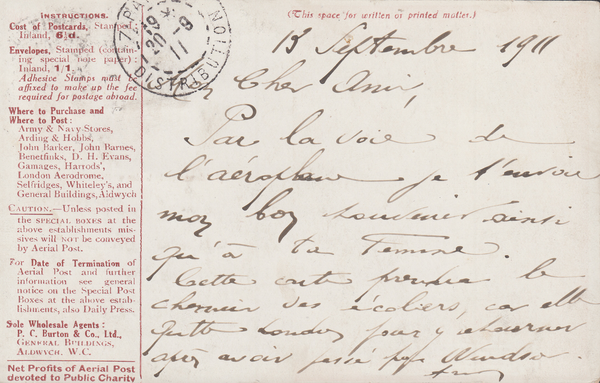 INSTRUCTIONS.
Cost of Postcards, Stamped,
Inland, 6½d.
Envelopes, Stamped (contain-
ing special note paper):
Inland, 1/1.
Adhesive Stamps must be
affixed to make up the fee
required for postage abroad.
Where to Purchase and
Where to Post:
Army & Navy Stores,
Arding & Hobbs,
John Barker, John Barnes,
Benetfinks, D. H. Evans,
Gamages, Harrods',
London Aerodrome,
Selfridges, Whiteley's, and
General Buildings, Aldwych
CAUTION.—Unless posted in
the SPECIAL BOXES at the
above establishments mis-
sives will NOT be conveyed
by Aerial Post.
For Date of Termination of
Aerial Post and further
information see general
notice on the Special Post
Boxes at the above estab-
lishments, also Daily Press.
Sole Wholesale Agents:
P. C. Burton & Co., Ltd.,
GENERAL BUILDINGS,
ALDWYCH, W.C.
Net Profits of Aerial Post
devoted to Public Charity
DISTRIBUTION
(This space for written or printed matter.)
13 Septembre 1911
Cher Ami,
Par la voie de
l'aéroplane je t'envoie
mon bon souvenir ainsi
qu'à ta femme.
Cette carte prendra le
chemin des écoliers, car elle
quitte Londres pour y retourner
après avoir passé par Windsor.